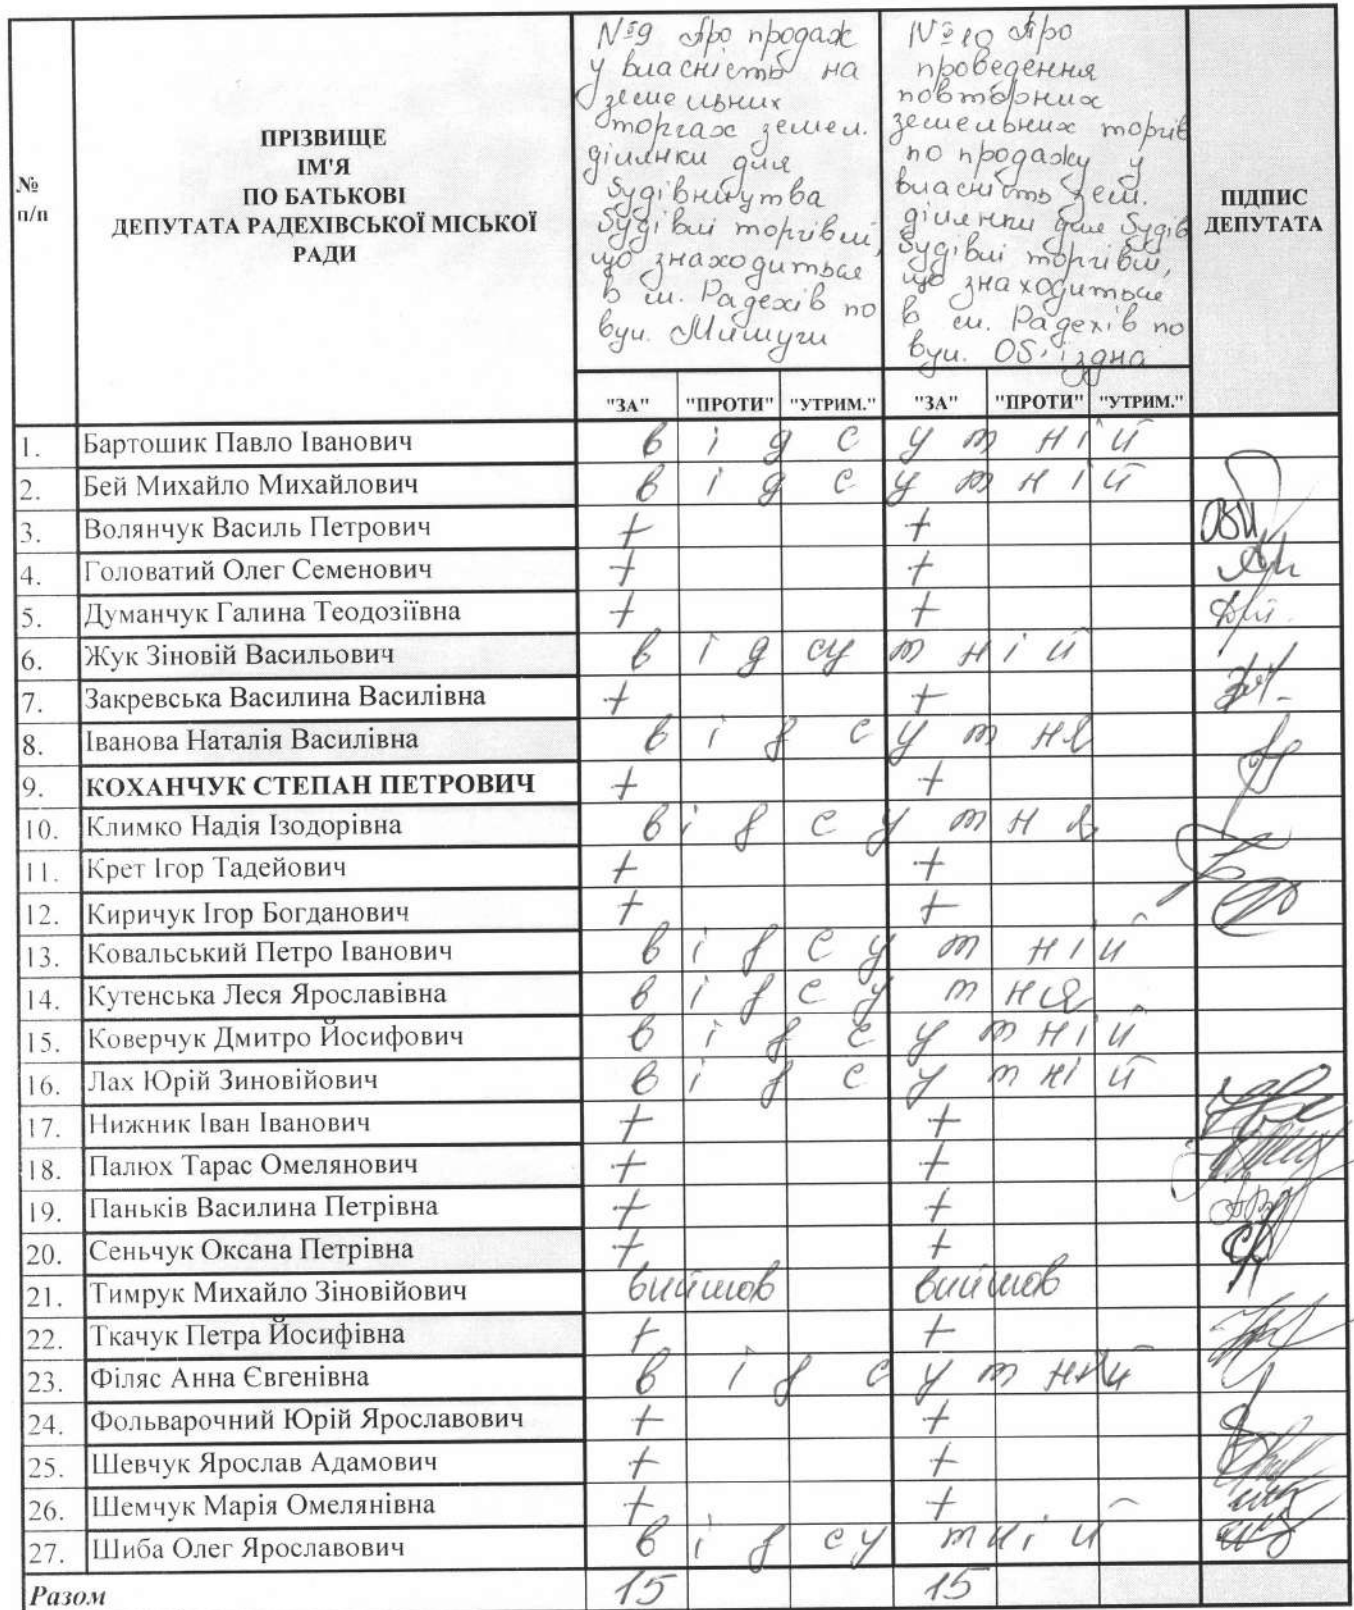 №
п/п
ПРІЗВИЩЕ
ІМ'Я
ПО БАТЬКОВІ
ДЕПУТАТА РАДЕХІВСЬКОЇ МІСЬКОЇ
РАДИ
№9 Про продаж
у власність на
земельних
торгах земел.
ділянки для
будівництва
будівлі торгівлі,
що знаходиться
в м. Радехів по
вул. Мишуги
№10 Про
проведення
повторних
земельних торгів
по продажу у
власність зем.
ділянки для будів
будівлі торгівлі,
що знаходиться
в м. Радехів по
вул. Об'їздна
ПІДПИС
ДЕПУТАТА
"ЗА" "ПРОТИ" "УТРИМ." "ЗА" "ПРОТИ" "УТРИМ."
1. Бартошик Павло Іванович відсутній
2. Бей Михайло Михайлович відсутній
3. Волянчук Василь Петрович + +
4. Головатий Олег Семенович + +
5. Думанчук Галина Теодозіївна + +
6. Жук Зіновій Васильович відсутній
7. Закревська Василина Василівна + +
8. Іванова Наталія Василівна відсутня
9. КОХАНЧУК СТЕПАН ПЕТРОВИЧ + +
10. Климко Надія Ізодорівна відсутня
11. Крет Ігор Тадейович + +
12. Киричук Ігор Богданович + +
13. Ковальський Петро Іванович відсутній
14. Кутенська Леся Ярославівна відсутня
15. Коверчук Дмитро Йосифович відсутній
16. Лах Юрій Зиновійович відсутній
17. Нижник Іван Іванович + +
18. Палюх Тарас Омелянович + +
19. Паньків Василина Петрівна + +
20. Сеньчук Оксана Петрівна + +
21. Тимрук Михайло Зіновійович вийшов вийшов
22. Ткачук Петра Йосифівна + +
23. Філяс Анна Євгенівна відсутній
24. Фольварочний Юрій Ярославович + +
25. Шевчук Ярослав Адамович + +
26. Шемчук Марія Омелянівна + +
27. Шиба Олег Ярославович відсутній
Разом 15 15